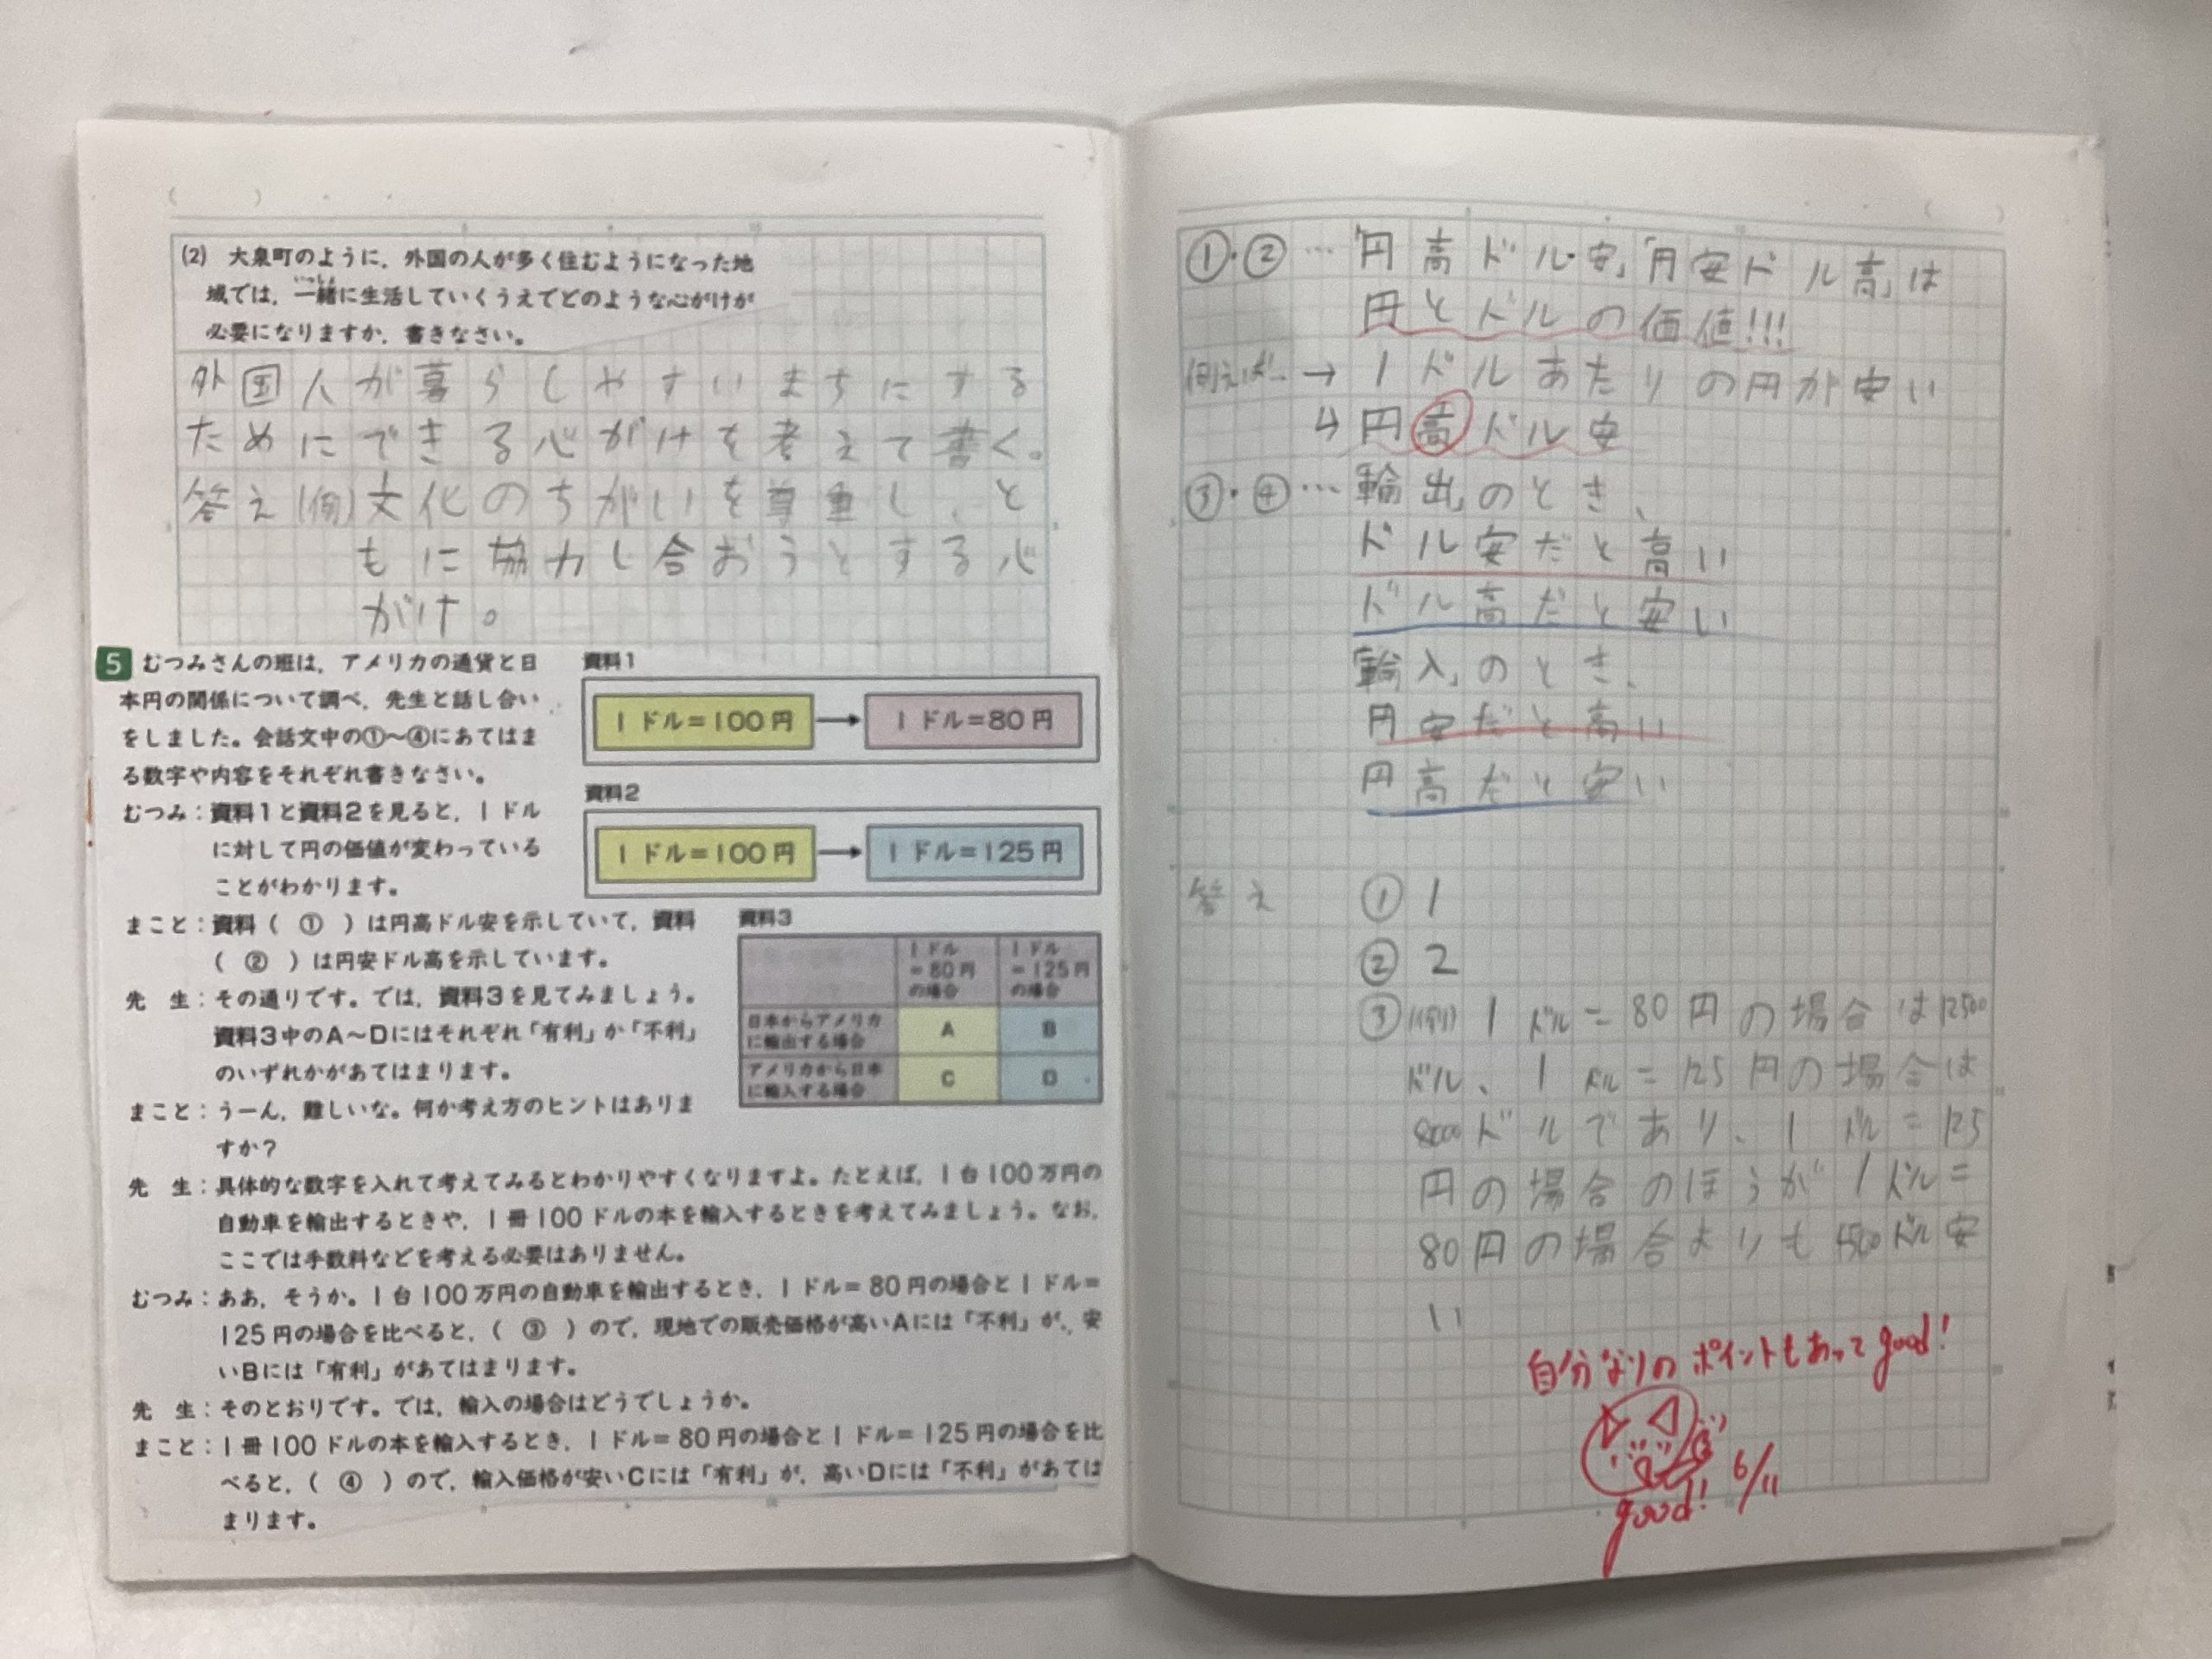 (2) 大泉町のように，外国の人が多く住むようになった地
域では，一緒に生活していくうえでどのような心がけが
いっしょ
必要になりますか，書きなさい。
外国人が暮らしやすいまちにする
ためにできる心がけを考えて書く。
答え(例)文化のちがいを尊重し、と
もに協力し合おうとする心
がけ。
5 むつみさんの班は，アメリカの通貨と日
本円の関係について調べ，先生と話し合い
をしました。会話文中の①〜④にあてはま
る数字や内容をそれぞれ書きなさい。
むつみ：資料1と資料2を見ると，1ドル
に対して円の価値が変わっている
ことがわかります。
まこと：資料( ① )は円高ドル安を示していて，資料
( ② )は円安ドル高を示しています。
先　生：その通りです。では，資料3を見てみましょう。
資料3中のA〜Dにはそれぞれ「有利」か「不利」
のいずれかがあてはまります。
まこと：うーん，難しいな。何か考え方のヒントはありま
すか？
先　生：具体的な数字を入れて考えてみるとわかりやすくなりますよ。たとえば，1台100万円の
自動車を輸出するときや，1冊100ドルの本を輸入するときを考えてみましょう。なお，
ここでは手数料などを考える必要はありません。
むつみ：ああ，そうか。1台100万円の自動車を輸出するとき，1ドル＝80円の場合と1ドル＝
125円の場合を比べると，( ③ )ので，現地での販売価格が高いAには「不利」が，安
いBには「有利」があてはまります。
先　生：そのとおりです。では，輸入の場合はどうでしょうか。
まこと：1冊100ドルの本を輸入するとき，1ドル＝80円の場合と1ドル＝125円の場合を比
べると，( ④ )ので，輸入価格が安いCには「有利」が，高いDには「不利」があては
まります。
資料1
1ドル＝100円 → 1ドル＝80円
資料2
1ドル＝100円 → 1ドル＝125円
資料3
1ドル
＝80円
の場合
1ドル
＝125円
の場合
日本からアメリカ
に輸出する場合
A B
アメリカから日本
に輸入する場合
C D
①・②…「円高ドル安」「円安ドル高」は
円とドルの価値!!!
例えば… → 1ドルあたりの円が安い
↳ 円高ドル安
③・④…「輸出」のとき、
ドル安だと高い
ドル高だと安い
「輸入」のとき、
円安だと高い
円高だと安い
答え ① 1
② 2
③(例) 1ドル＝80円の場合は12500
ドル、1ドル＝125円の場合は
8000ドルであり、1ドル＝125
円の場合のほうが1ドル＝
80円の場合よりも4500ドル安
い
自分なりのポイントもあってgood!
good! 6/11